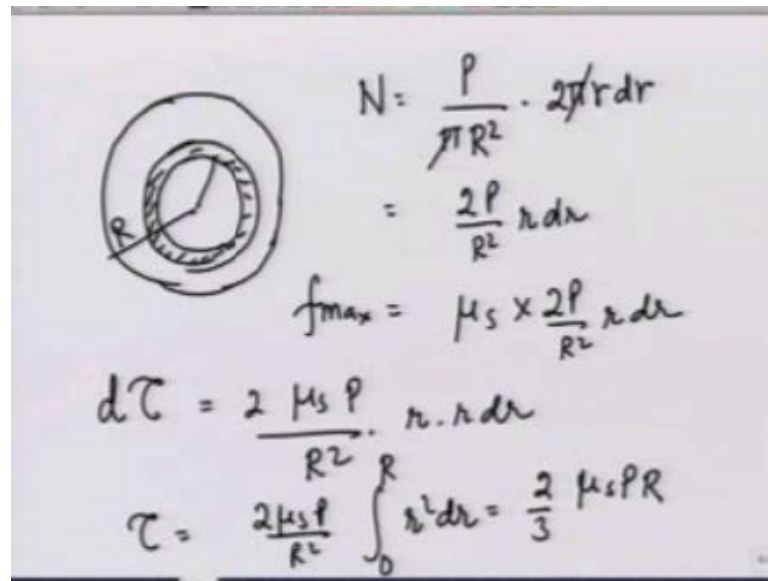 N = P/πR² · 2πr dr
R
= 2P/R² r dr
fmax = μs × 2P/R² r dr
dτ = 2 μs P/R² · r . r dr
τ = 2μsP/R² ∫₀ᴿ r² dr = 2/3 μsPR